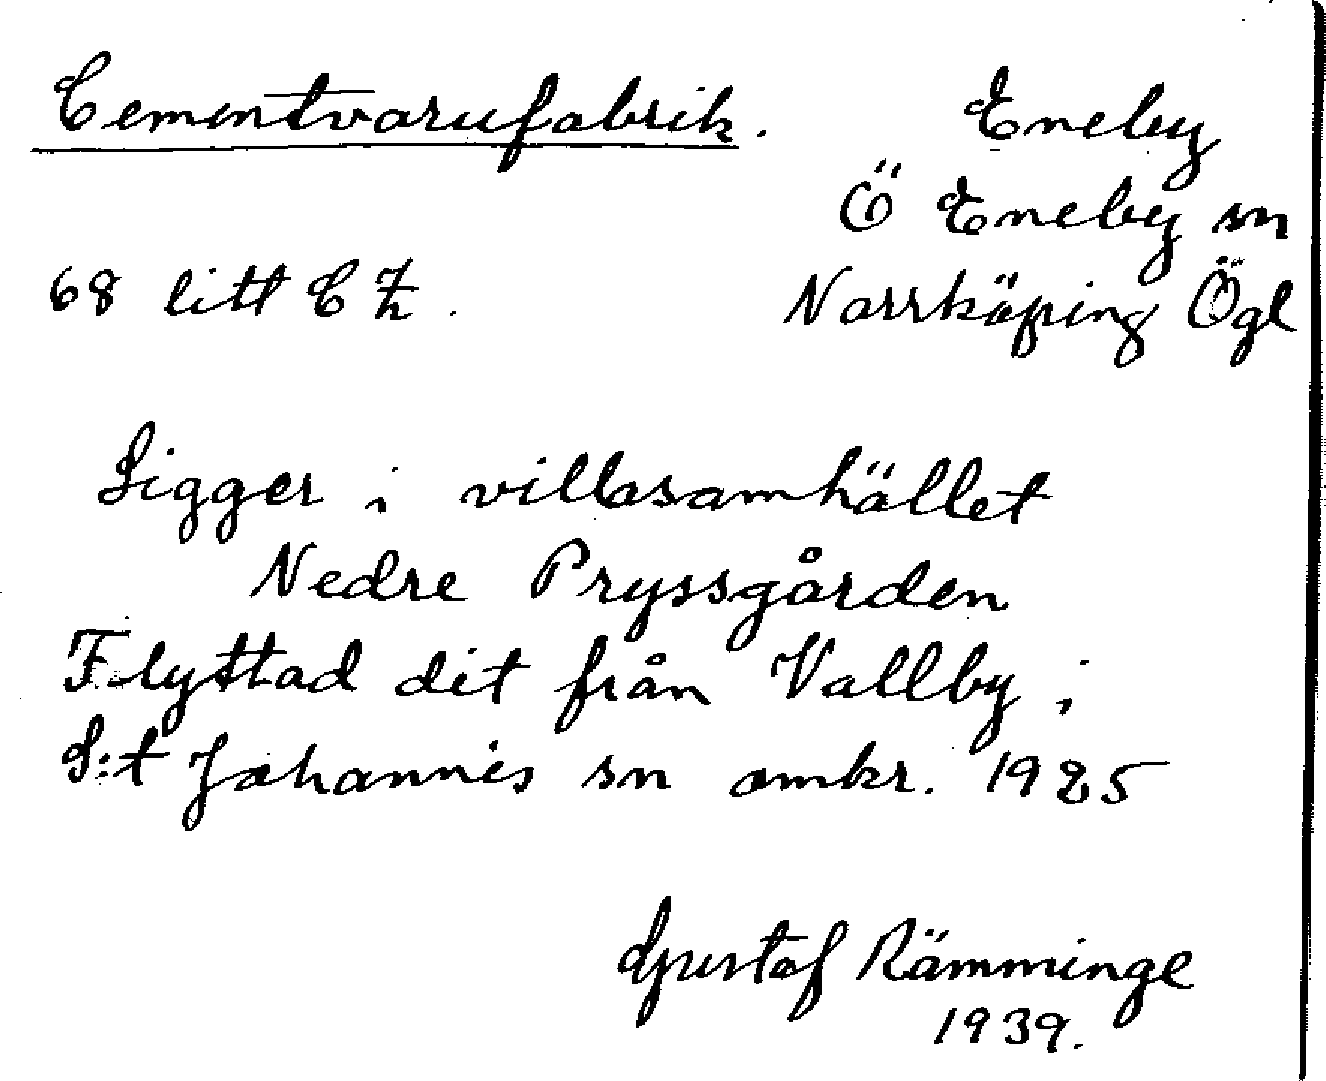 Cementvarufabrik.
Eneby
Ö Eneby sn
68 litt C Z.
Norrköping Ögl
Ligger i villasamhället
Nedre Pryssgården
Flyttad dit från Vallby i
S:t Johannis sn omkr. 1925
Gustaf Rämminge
1939.